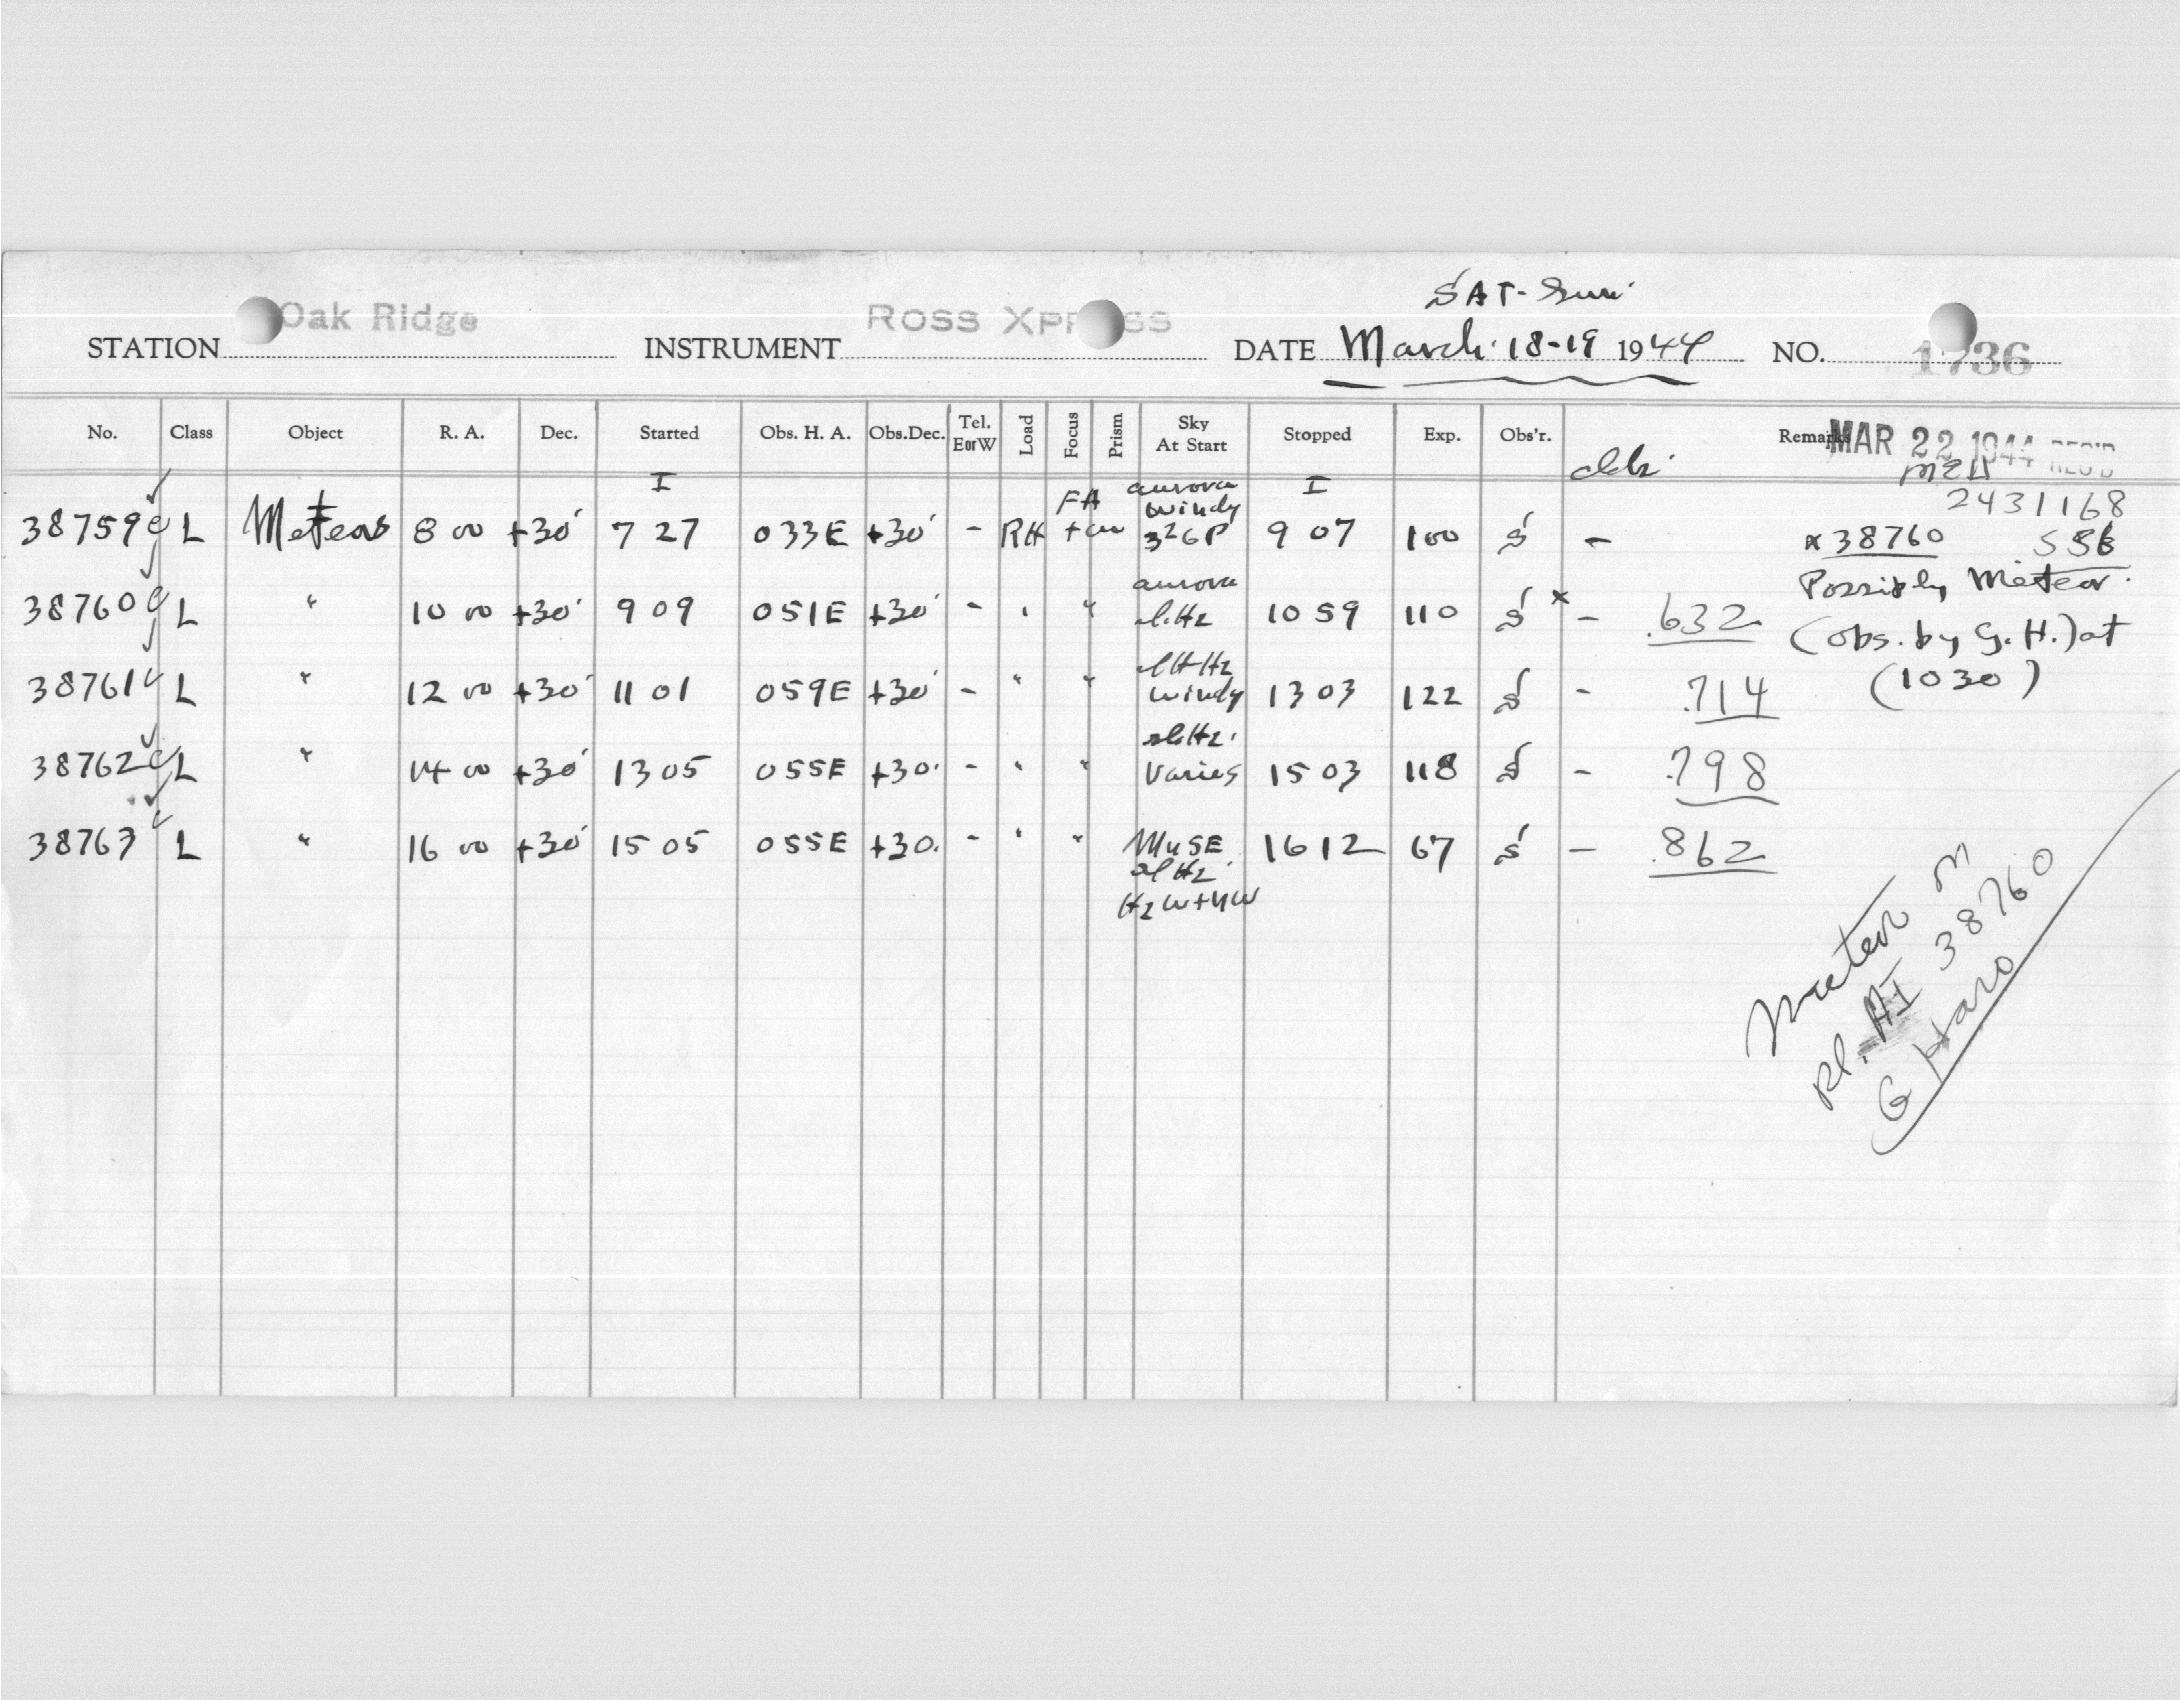 SAT-Sun
STATION Oak Ridge INSTRUMENT ROSS XPRESS DATE March 18-19 1944 NO. 1736
No. Class Object R. A. Dec. Started Obs. H. A. Obs.Dec. Tel. EorW Load Focus Prism Sky At Start Stopped Exp. Obs'r. Remarks
MAR 22 1944 REC'D
I FA aurora I
windy 2431168
38759 L Meteors 8 00 +30 7 27 033E +30 - RH + 326P 9 07 100 S - x 38760 556
aurora Possibly Meteor
38760 L " 10 00 +30 9 09 051E +30 - " " sl.Hz 10 59 110 S x - .632 (obs. by G. H.) at
(1030)
38761 L " 12 00 +30 11 01 059E +30 - " " windy 13 03 122 S - .714
sl.Hz.
38762 L " 14 00 +30 13 05 055E +30 - " " Varies 15 03 118 S - .798
38763 L " 16 00 +30 15 05 055E +30 - " " 16 12 67 S - .862
sl Hz
Hz W+NW
Meteor on
pl. AI 38760
G Haro